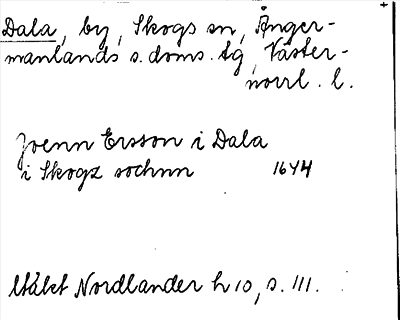 Dala, by, Skogs sn, Ånger-
manlands s. doms. tg, Väster-
norrl. l.
Joenn Ersson i Dala
i Skogz sochnn 1644
Utdict Nordlander h 10, s. 111.